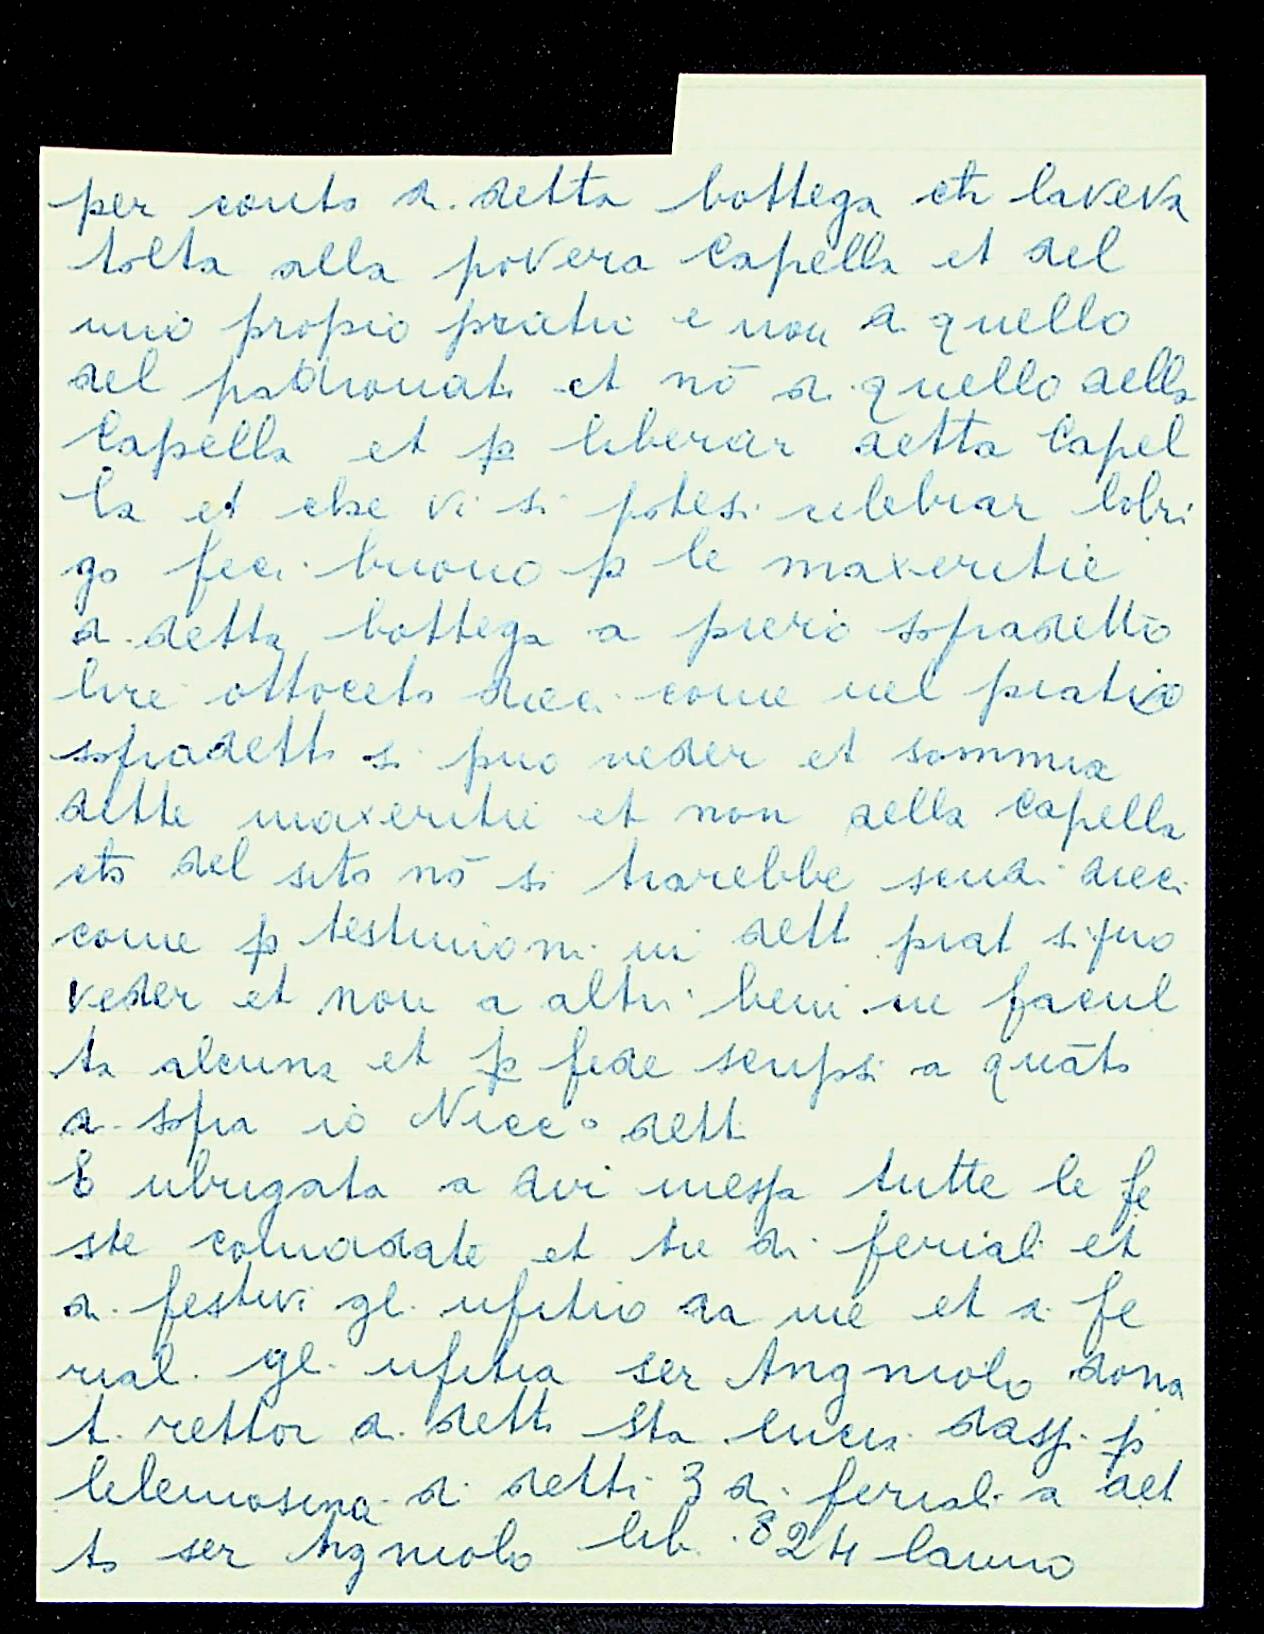 per conto di detta bottega ch̄ laveva
tolta alla povera Capella et del
mio propio pricti e non di quello
del padronati et nō di quello della
Capella et p̱ liberar detta Capel
la et che vi si potesi celebrar lobri
go feci buono p̱ le maxeritie
di detta bottega a piero sopradetto
lire ottoceto dieci come nel piatio
sopradetto si puo veder et somma
dette maxeritie et non della Capella
ch̄ del sito nō si trarebbe scudi dieci
come p̱ testimioni in dett piat si puo
veder et non a altri beni ne facul
ta alcuna et p̱ fede scripsi a quāto
di sopra io Nicc° dett
E ubrigata a dir messa tutte le fe
ste comadate et tre di feriali et
di festivi gl. ufitio da me et di fe
rial. gl. ufitia ser Angniolo dona
ti rettor di detta Sta lucia dassi p̱
lelemosina di detti 3 di feriali a det
to ser Angniolo lib. 24 lanno